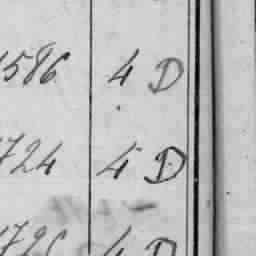 1586 4 D
1724 4 D
1726 4 D